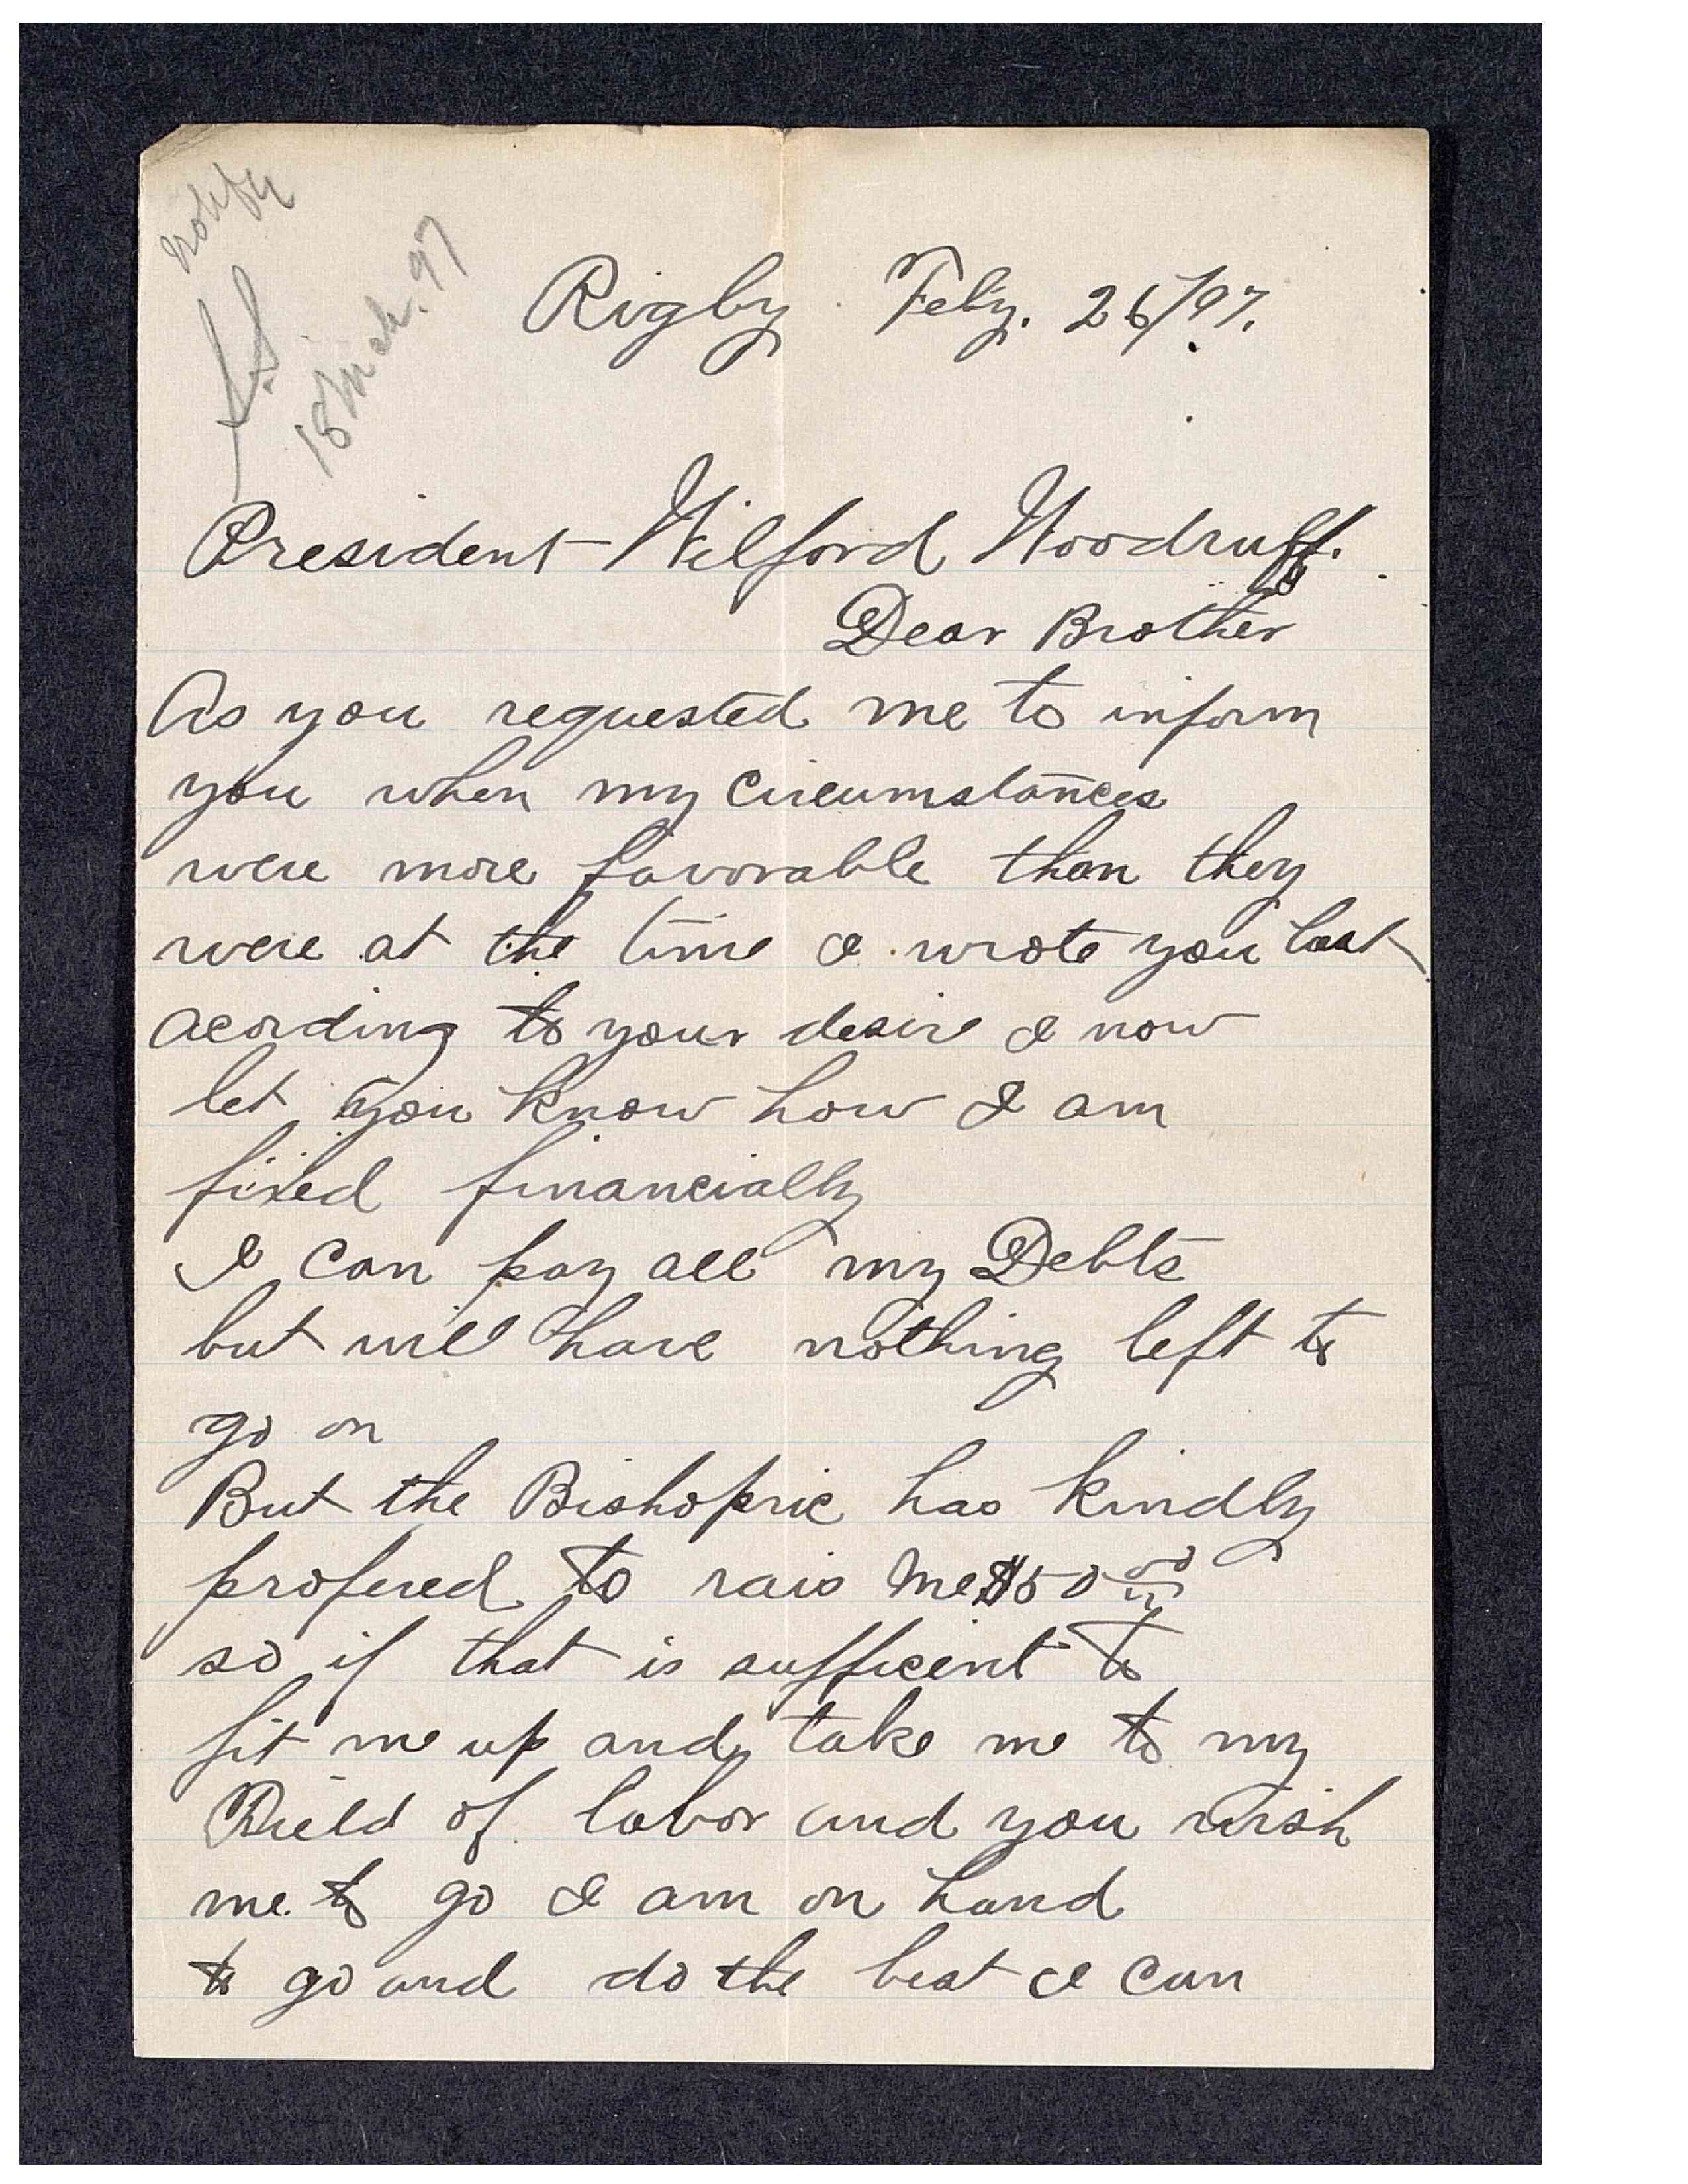 notify
18 Mch. 97
Rigby Feby. 26/97.
President Wilford Woodruff.
Dear Brother
As you requested me to inform
you when my Circumstances
were more favorable than they
were at the time I wrote you last
acording to your desire I now
let you know how I am
fixed financially
I Can pay all my Debts
but will have nothing left to
go on
But the Bishopric has kindly
profered to rais me $50 00
so if that is sufficent to
fit me up and take me to my
Field of labor and you wish
me to go I am on hand
to go and do the best I Can